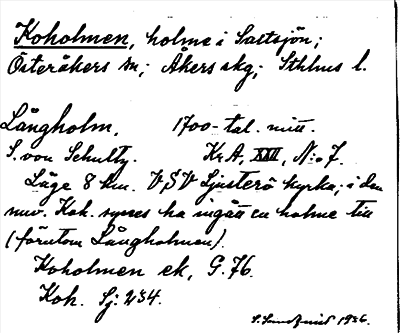 Koholmen, holme i Saltsjön;
Österåkers sn; Åkers skg; Sthlms l.
Långholm. 1700-tal. mitt.
S. von Schultz. Kr.A. XXI, N:o 7.
Läge 8 km. VSV Ljusterö kyrka; i den
nuv. Koh. synes ha ingått en holme till
(förutom Långholmen).
Koholmen ek, G. 76.
Koh. Sj: 234.
1936.